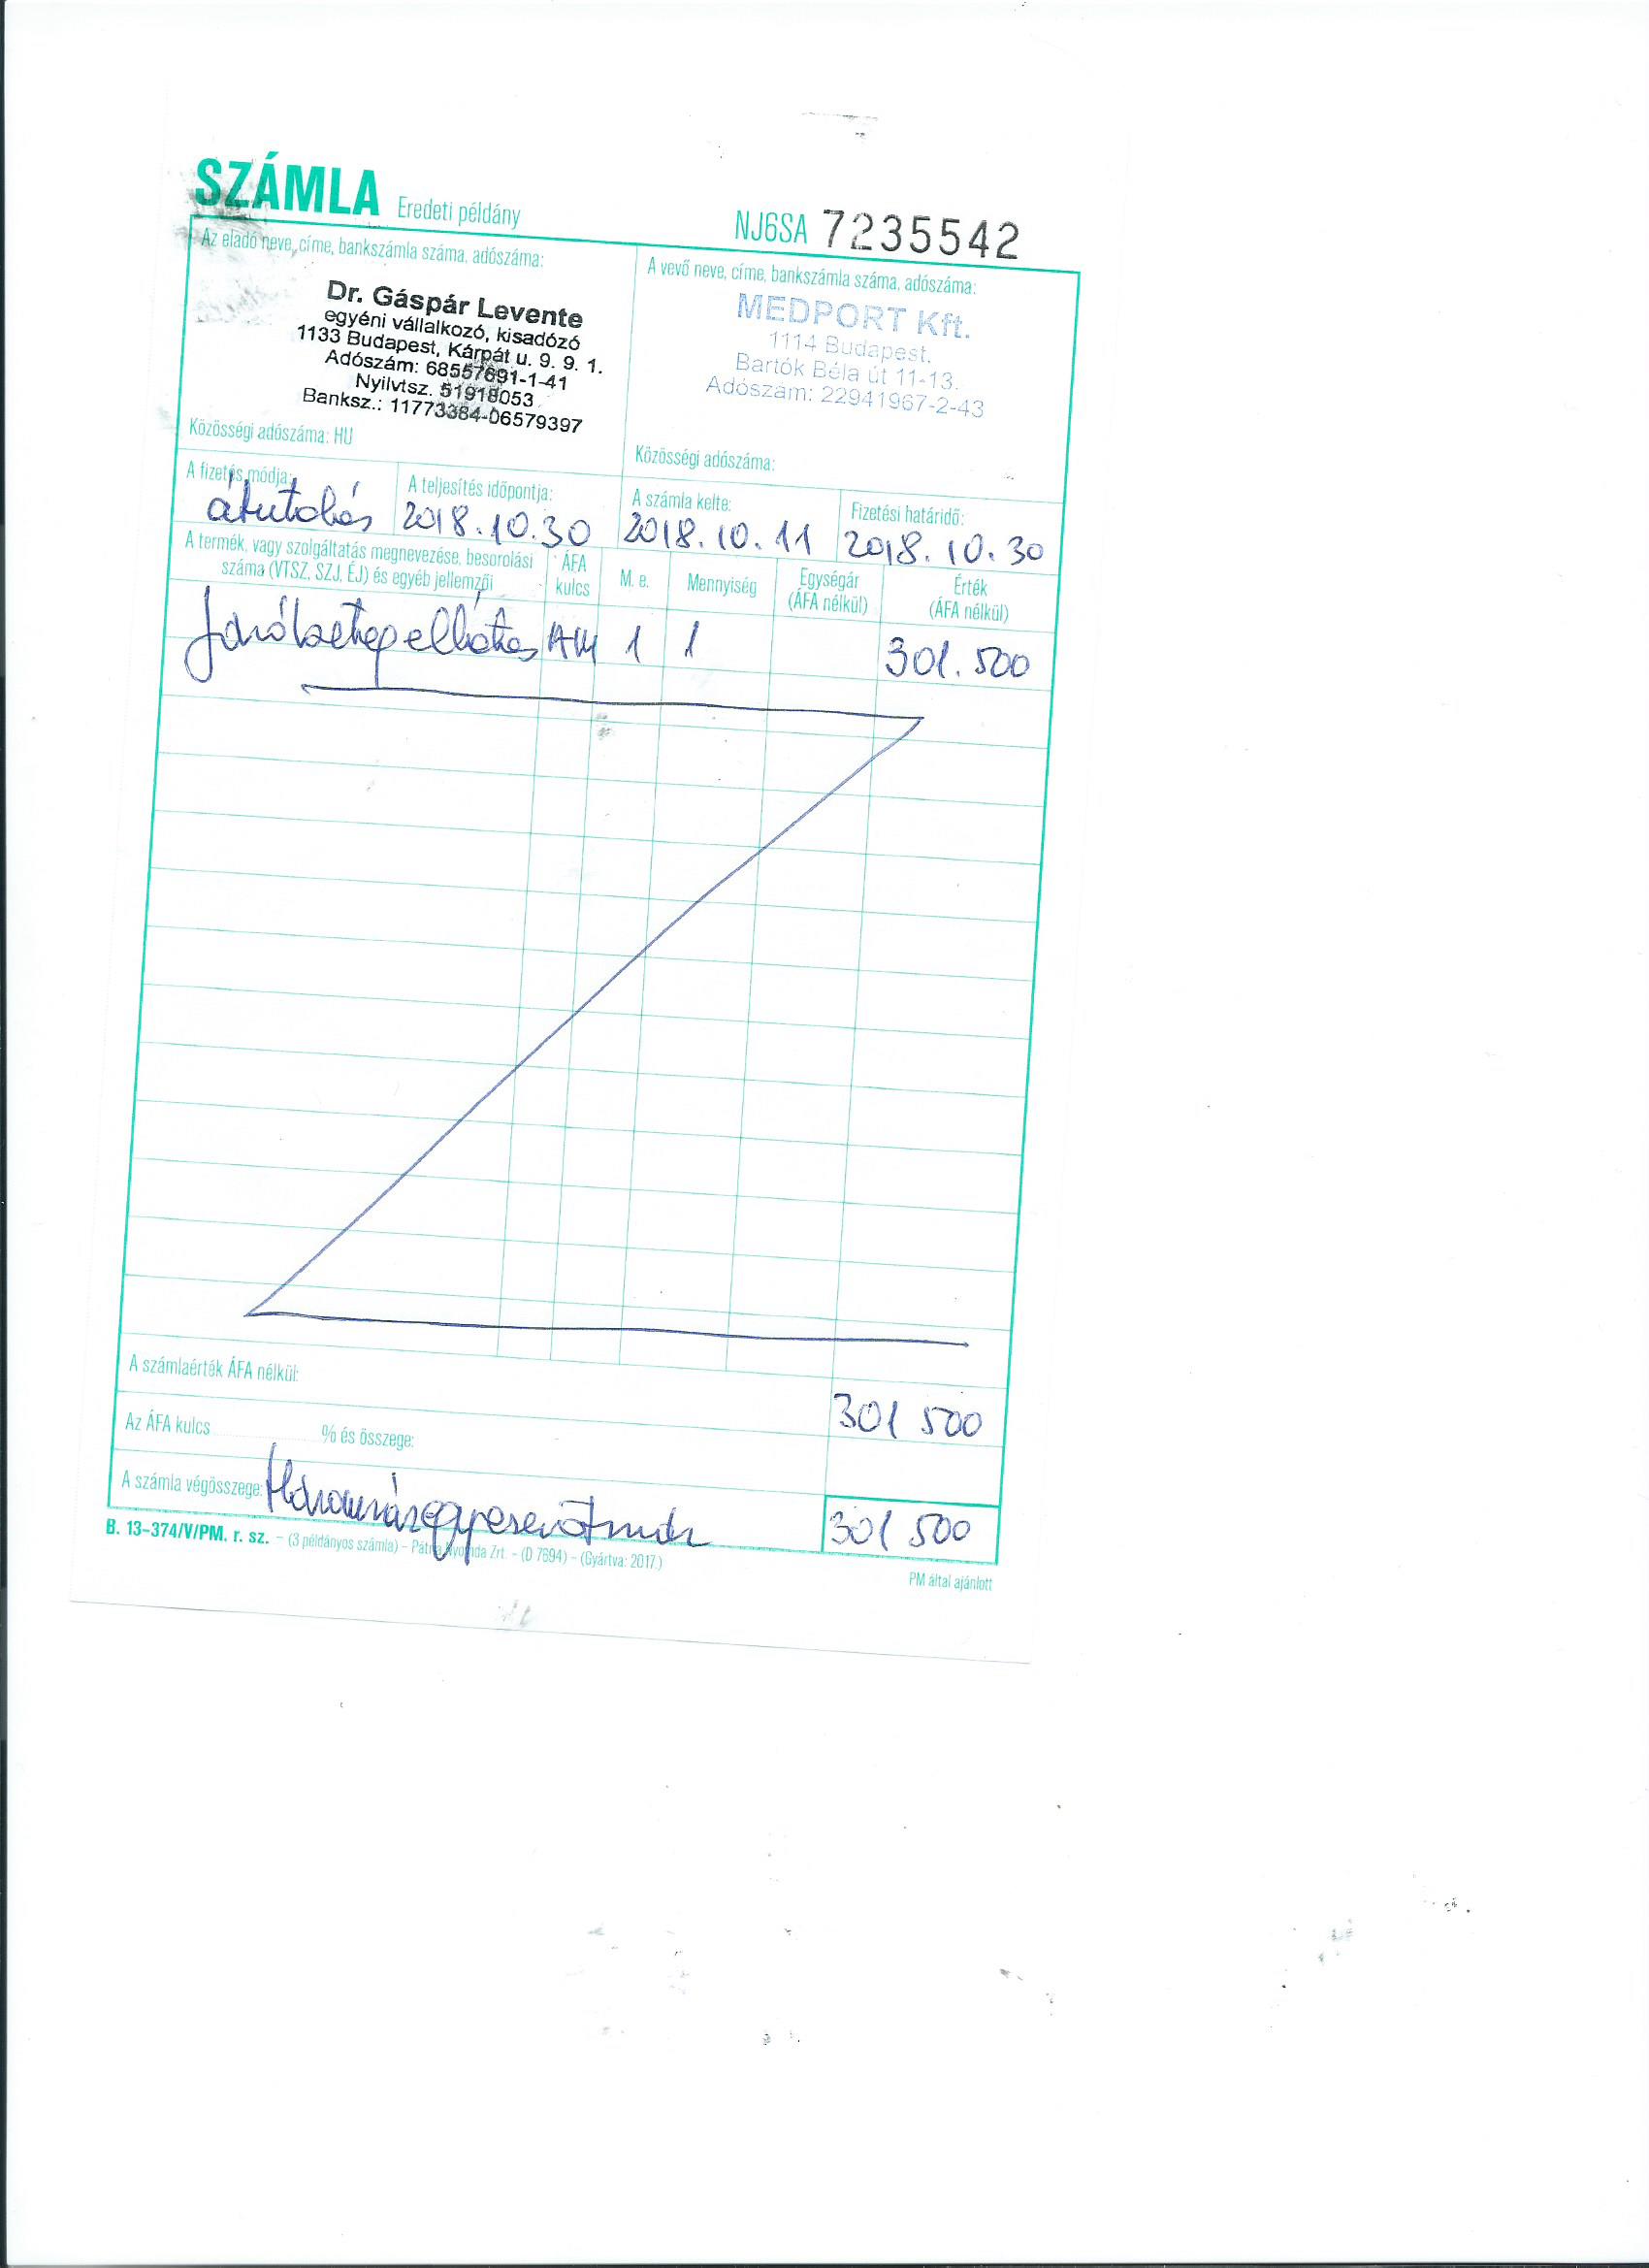 SZÁMLA Eredeti példány NJ6SA 7235542
Az eladó neve, címe, bankszámla száma, adószáma:
Dr. Gáspár Levente
egyéni vállalkozó, kisadózó
1133 Budapest, Kárpát u. 9. 9. 1.
Adószám: 68557691-1-41
Nyilvtsz. 51918053
Banksz.: 11773384-06579397
Közösségi adószáma: HU
A vevő neve, címe, bankszámla száma, adószáma:
MEDPORT Kft.
1114 Budapest.
Bartók Béla út 11-13.
Adószám: 22941967-2-43
Közösségi adószáma:
A fizetés módja: A teljesítés időpontja: A számla kelte: Fizetési határidő:
átutalás 2018.10.30 2018.10.11 2018.10.30
A termék, vagy szolgáltatás megnevezése, besorolási
száma (VTSZ, SZJ, ÉJ) és egyéb jellemzői
ÁFA
kulcs
M. e.
Mennyiség
Egységár
(ÁFA nélkül)
Érték
(ÁFA nélkül)
járóbeteg ellátás AM 1 1 301.500
A számlaérték ÁFA nélkül: 301 500
Az ÁFA kulcs % és összege:
A számla végösszege: Háromszázegyezerötszáz 301 500
B. 13-374/V/PM. r. sz. – (3 példányos számla) – Pátria Nyomda Zrt. – (D 7694) – (Gyártva: 2017.)
PM által ajánlott